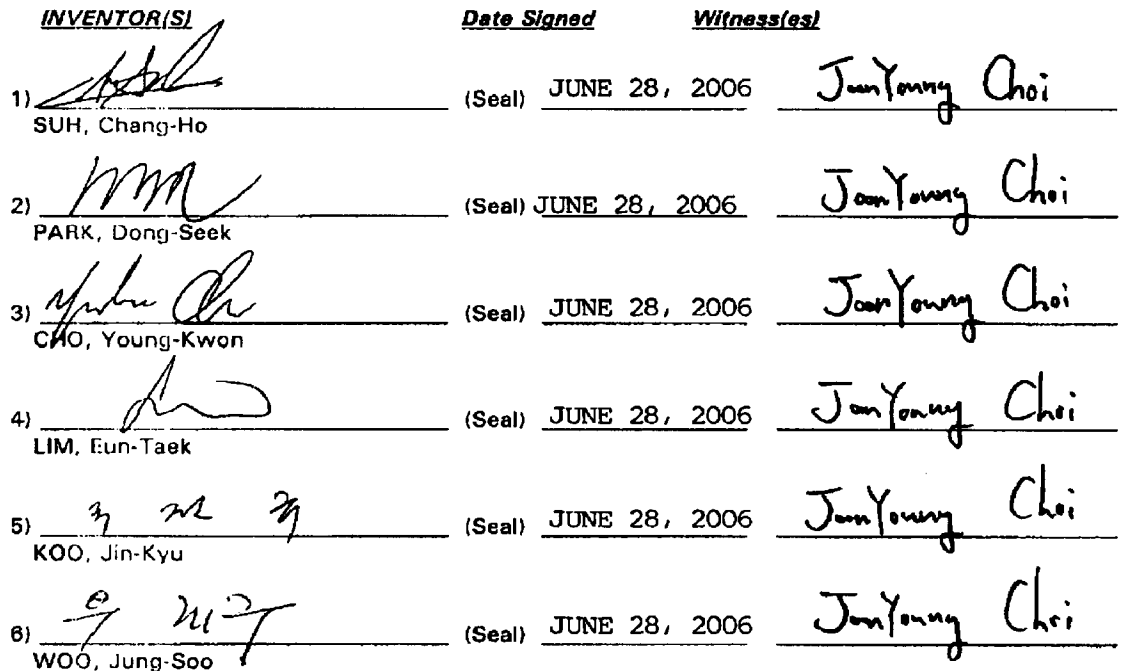 INVENTOR(S) Date Signed Witness(es)
1) (Seal) JUNE 28, 2006 JoonYoung Choi
SUH, Chang-Ho
2) (Seal) JUNE 28, 2006 JoonYoung Choi
PARK, Dong-Seek
3) (Seal) JUNE 28, 2006 JoonYoung Choi
CHO, Young-Kwon
4) (Seal) JUNE 28, 2006 JoonYoung Choi
LIM, Eun-Taek
5) (Seal) JUNE 28, 2006 JoonYoung Choi
KOO, Jin-Kyu
6) (Seal) JUNE 28, 2006 JoonYoung Choi
WOO, Jung-Soo